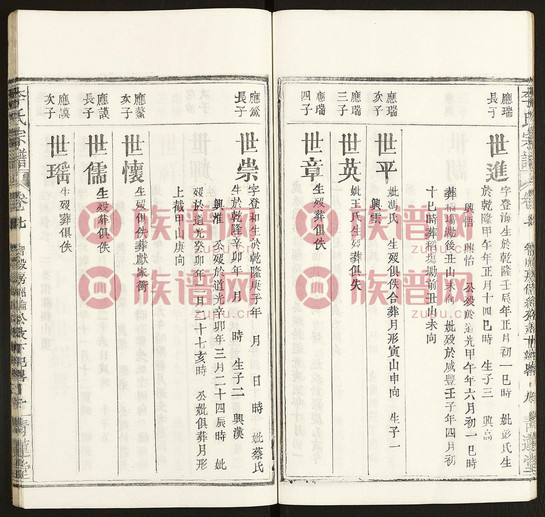 應瑞
長子
世進
字登海生於乾隆壬辰年正月初一巳時 妣彭氏生
於乾隆甲午年正月十四巳時 生子三 興高
興悟 興怡 公歿於道光甲午年六月初一巳時
葬稻塲勘後丑山未向 妣歿於咸豐壬子年四月初
十巳時葬稻塲勘前丑山未向
應瑞
次子
世平
妣馮氏 生歿俱佚合葬月形寅山申向 生子一
興雲
應瑞
三子
世英
妣王氏生歿葬俱失
應瑞
四子
世章
生歿葬俱佚
長子
世崇
字登和生於乾隆庚子年 月 日 時 妣蔡氏
生於乾隆辛卯年 月 時 生子二 興漢
興淮 公歿於道光辛卯年三月二十四辰時 妣
歿於道光癸卯年二月二十七亥時 公妣俱葬月形
上截甲山庚向
次子
世懷
生歿俱佚葬獻家衝
應謨
長子
世儒
生歿葬俱佚
應謨
次子
世瑤
生歿葬俱佚
李氏宗譜
卷
族谱网
zupu.cn
族谱网
zupu.cn